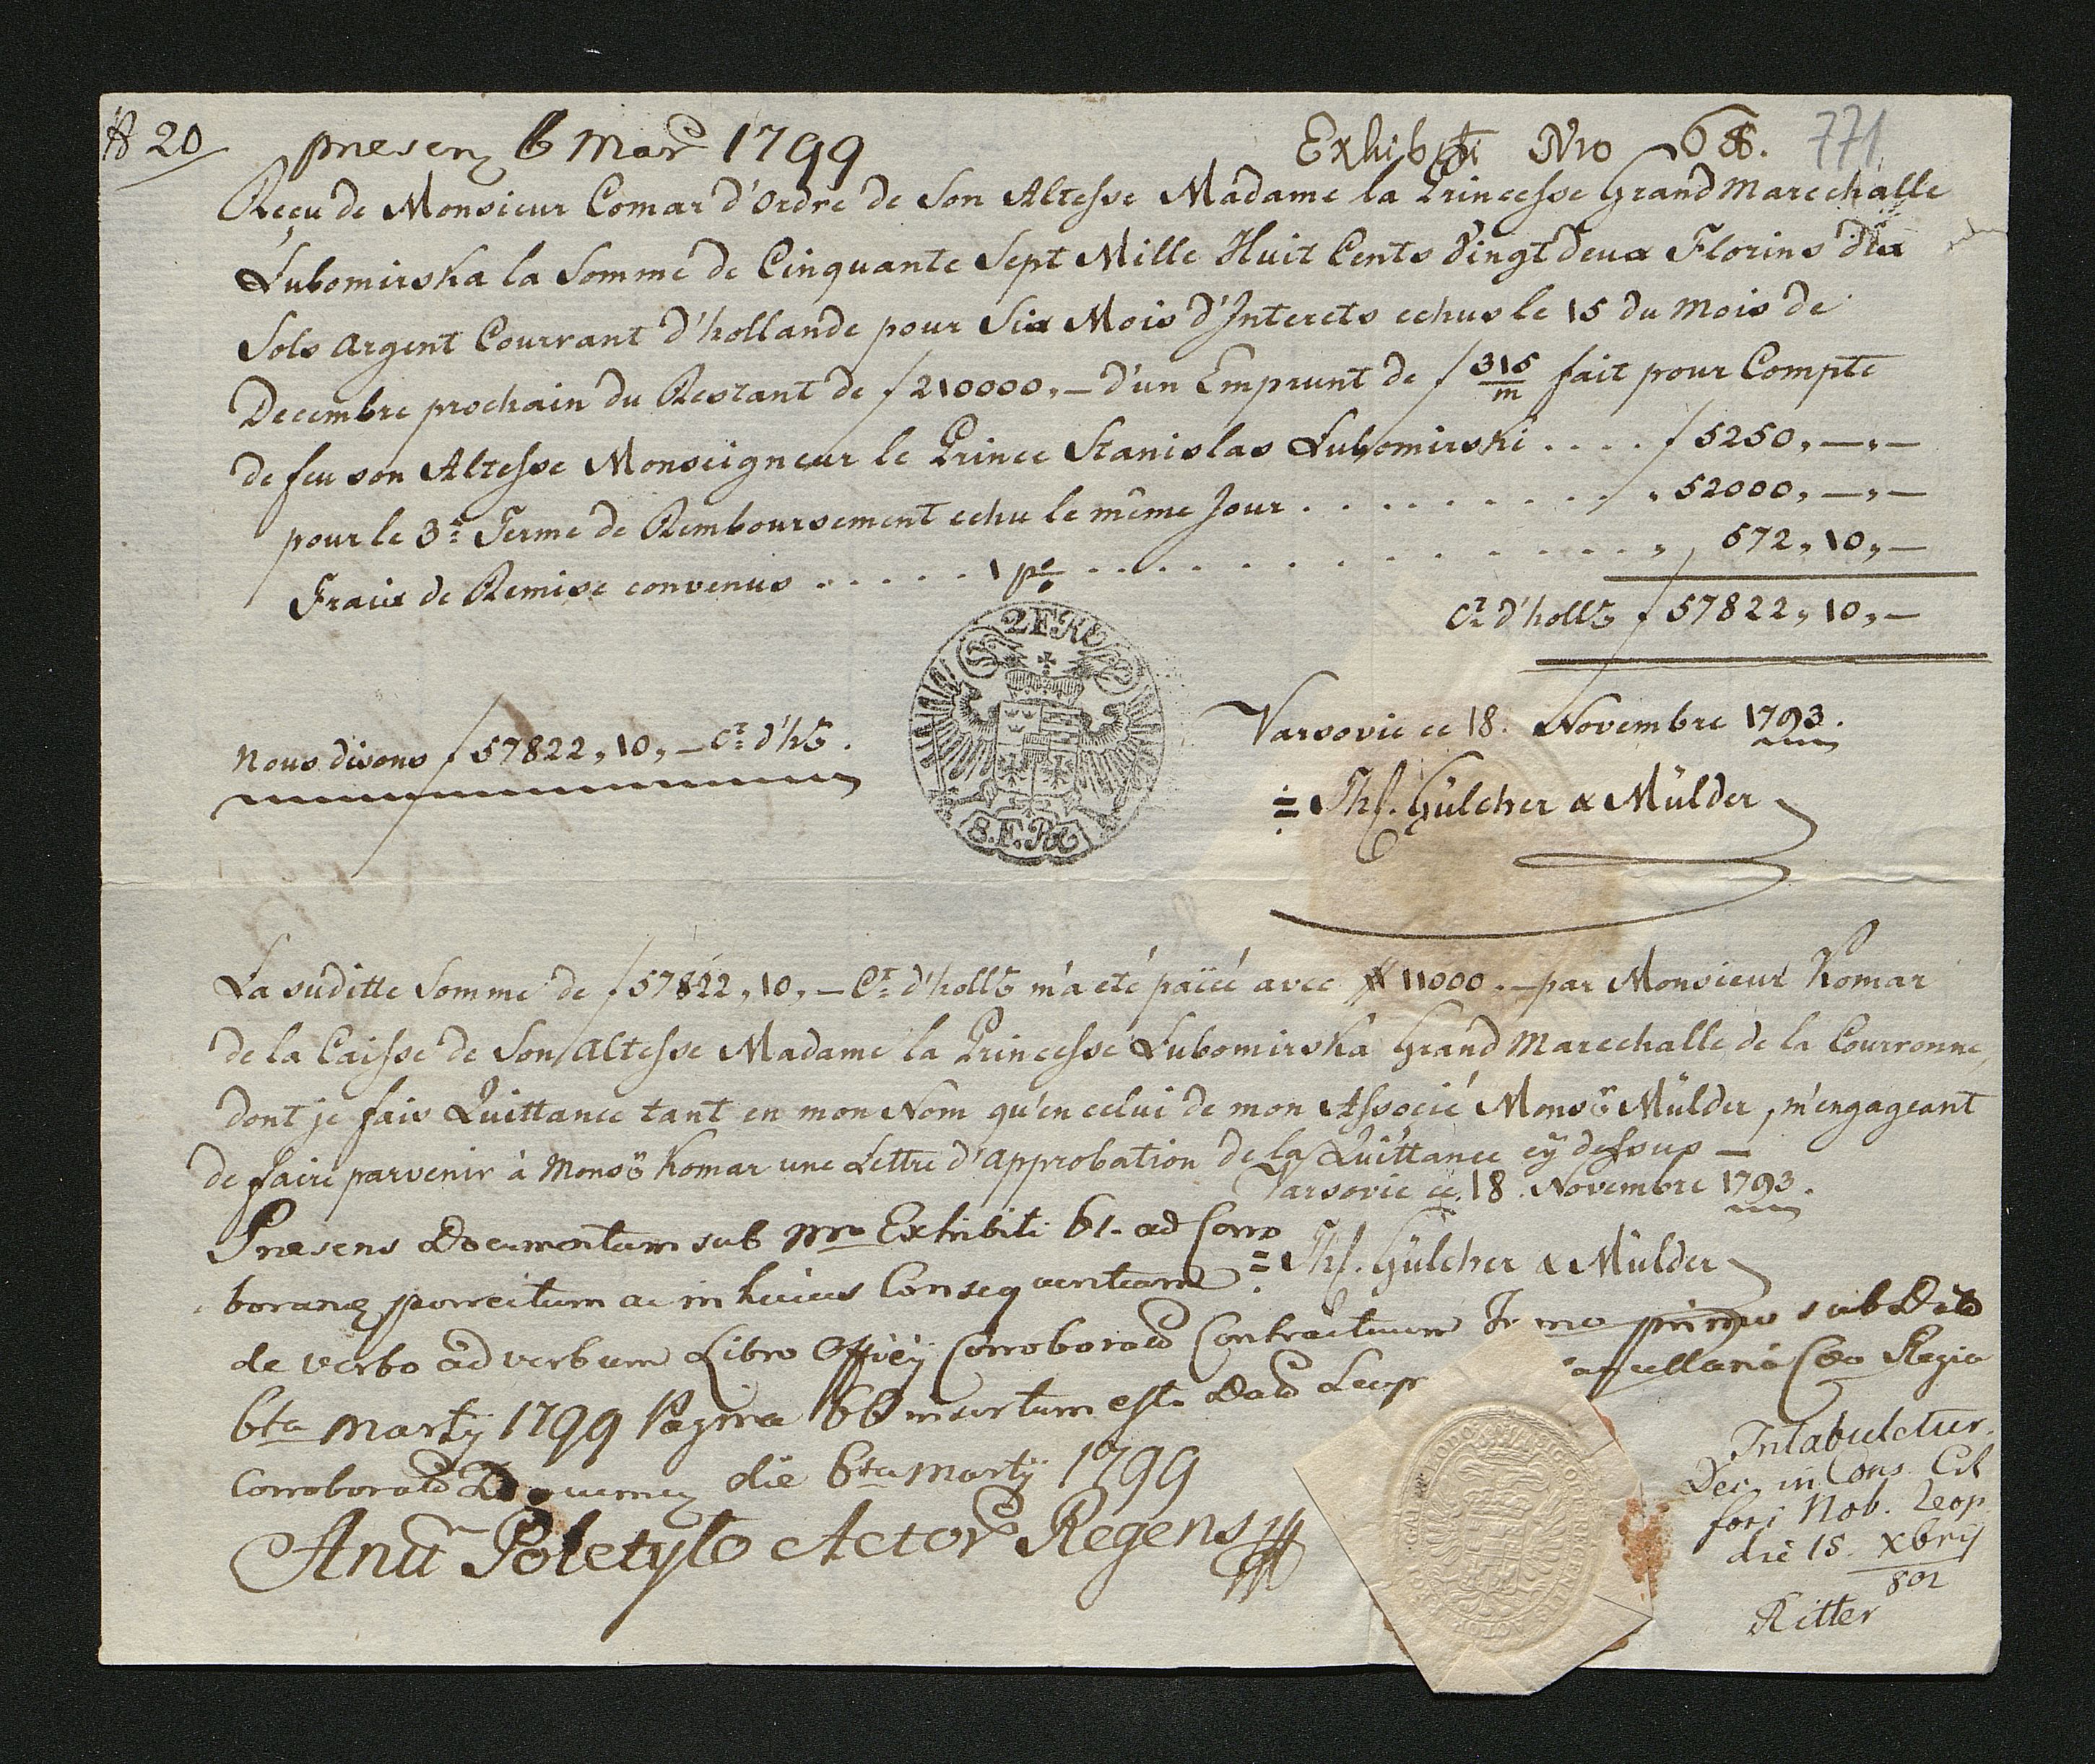 # 20
presen 6 Mar 1799
Exhibiti Nro 771
Reçu de Monsieur Comar d'Ordre de Son Altesse Madame la Princesse Grand Marechalle
Lubomirska la Somme de Cinquante Sept Mille Huit Cents Vingt deux Florins dix
Sols Argent Courrant d'hollande pour Six Mois d'Interets echus le 15 du Mois de
Decembre prochain du Restant de f 210000,— d'un Emprunt de f 315/m fait pour Compte
de feu son Altesse Monseigneur le Prince Stanislas Lubomirski .... f 5250,—,—
pour le 3e Terme de Remboursement echu le même Jour ......... " 52000,—,—
Fraix de Remise convenus ..... 1 pC° ............ " 572,10,—
Ct d'hollde f 57822,10,—
2 FR X
Nous disons f 57822,10,— Ct d'hde.
Varsovie ce 18. Novembre 1793.
S.F.RX
Ths. Gülcher & Mülder
La suditte Somme de f 57822,10,— Ct d'hollde m'a eté païée avec # 11000.— par Monsieur Komar
de la Caisse de Son Altesse Madame la Princesse Lubomirska Grand Marechalle de la Courronne,
dont je fais Quittance tant en mon Nom qu'en celui de mon Associé Monsr Mülder, m'engageant
de faire parvenir à Monsr Komar une Lettre d'Approbation de la Quittance cy dessus —
Varsovie ce 18. Novembre 1793.
Praesens Documentum sub Nro Exhibiti 61. ad Corro
Ths. Gülcher & Mülder
borand porrectum ac in huius Consequentiam
de verbo ad verbum Libro Officij Corroborand Contractuum Tomo primo sub Dato
6ta Martij 1799 Pagina insertum est. Dat Leop Cancellaria Caeo Regia
Corroborand Documen die 6ta Martij 1799
Antt Poletyło Actor Regens
Intabuletur.
Dec. in Cons. C R
fori Nob. Leop
die 15. Xbris
802
Ritter